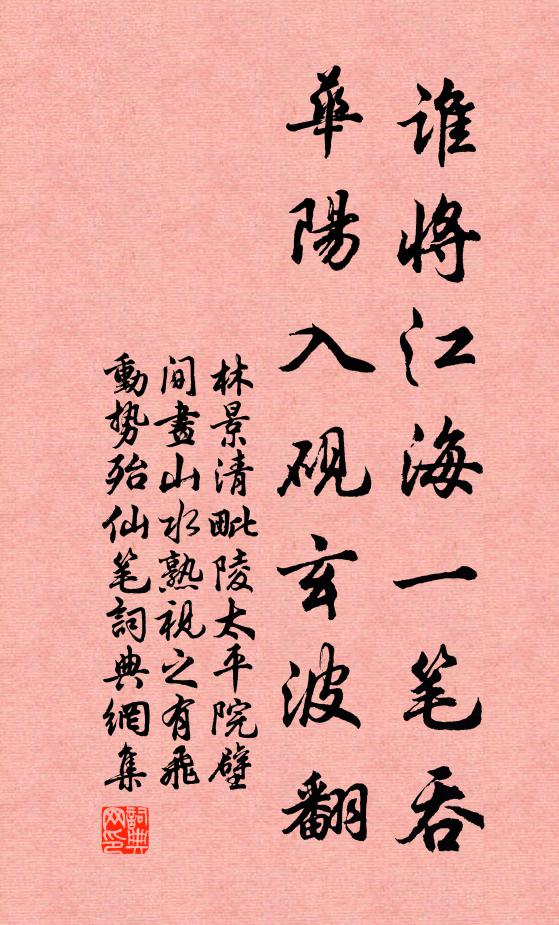 谁將江海一笔吞
華陽入硯玄波翻
林景清毗陵太平院壁
间畫山水熟視之有飛
動势殆仙笔詞典網集
詞典网印